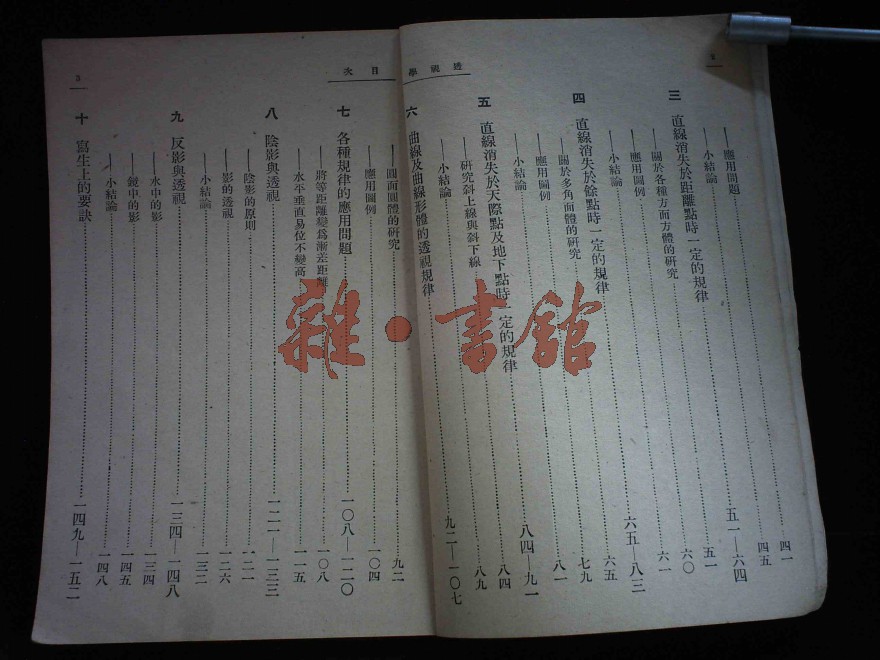 2
透視學目次
——應用問題……四一
——小結論……四五
三 直線消失於距離點時一定的規律……五一—六四
——關於各種方面方體的研究……五一
——應用圖例……六〇
——小結論……六一
四 直線消失於餘點時一定的規律……六五—八三
——關於多角面體的研究……六五
——應用圖例……七九
——小結論……八一
五 直線消失於天際點及地下點時一定的規律……八四—九一
——研究斜上線與斜下線……八四
——小結論……八九
六 曲線及曲線形體的透視規律……九二—一〇七
3
——圓面圓體的研究……九二
——應用圖例……一〇四
七 各種規律的應用問題……一〇八—一二〇
——將等距離變爲漸差距離……一〇八
——水平垂直易位不變高……一一五
八 陰影與透視……一二一—一三三
——陰影的原則……一二一
——影的透視……一二六
——小結論……一三二
九 反影與透視……一三四—一四八
——水中的影……一三四
——鏡中的影……一四五
——小結論……一四八
十 寫生上的要訣……一四九—一五二
雜·書館